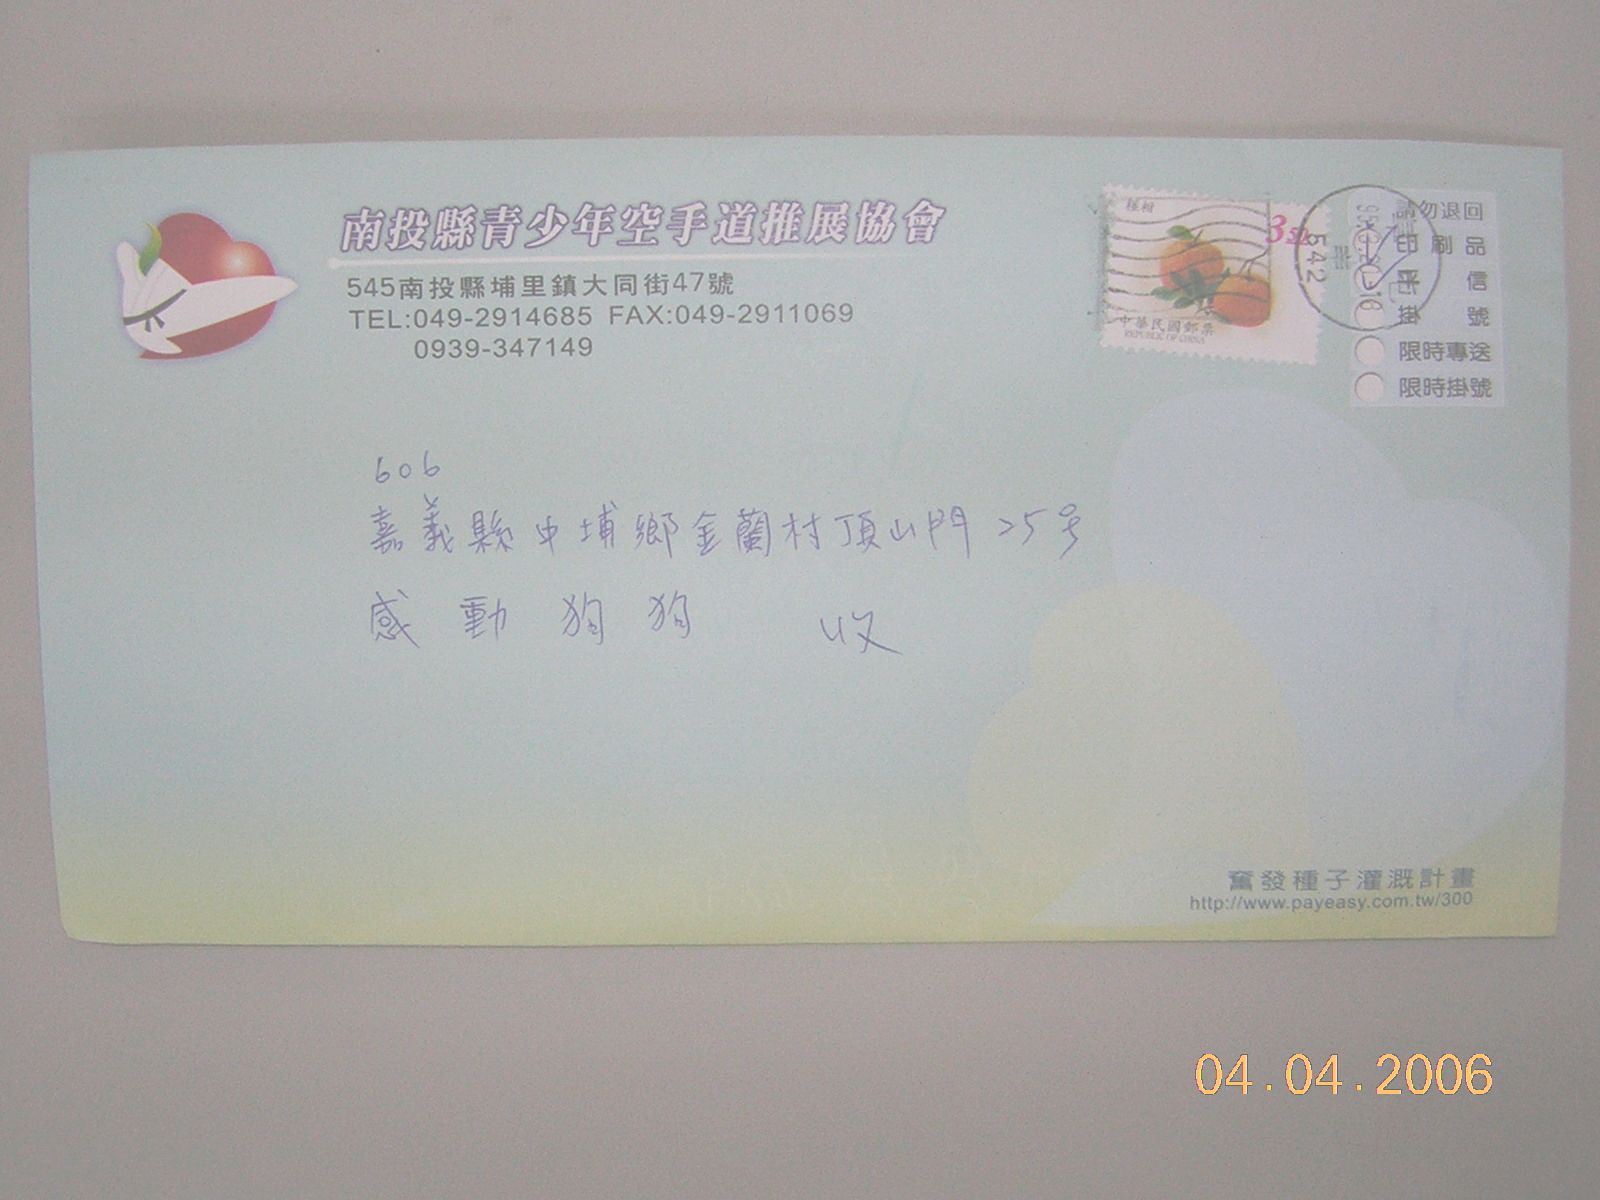 南投縣青少年空手道推展協會
545南投縣埔里鎮大同街47號
TEL:049-2914685 FAX:049-2911069
0939-347149
3.50
中華民國郵票
REPUBLIC OF CHINA
542
請勿退回
印刷品
平信
掛號
限時專送
限時掛號
606
嘉義縣中埔鄉金蘭村頂山門25号
感動狗狗 收
奮發種子灌溉計畫
http://www.payeasy.com.tw/300
04.04.2006